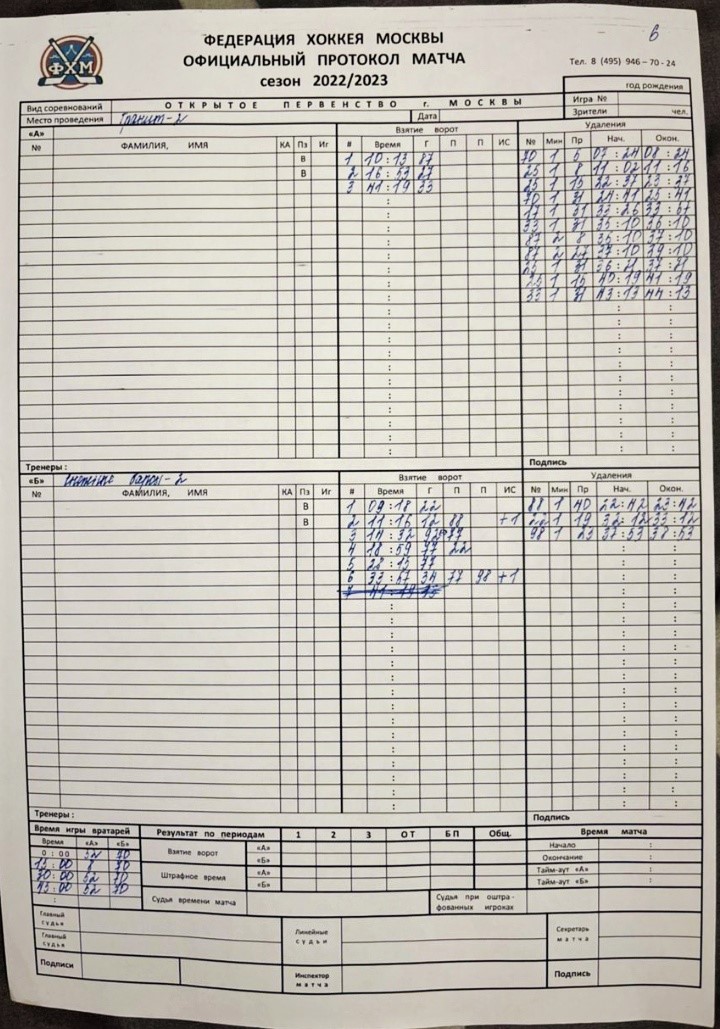 6
ФХМ
ФЕДЕРАЦИЯ ХОККЕЯ МОСКВЫ
ОФИЦИАЛЬНЫЙ ПРОТОКОЛ МАТЧА
сезон 2022/2023
Тел. 8 (495) 946 – 70 - 24
год рождения
Вид соревнований ОТКРЫТОЕ ПЕРВЕНСТВО г. МОСКВЫ Игра №
Место проведения Гранит-2 Дата Зрители чел.
«А» Взятие ворот Удаления
№ ФАМИЛИЯ, ИМЯ КА Пз Иг # Время Г П П ИС № Мин Пр Нач. Окон.
В 1 10:13 87 70 1 5 07:24 08:24
В 2 16:53 27 25 1 8 11:02 11:16
3 41:19 33 25 1 15 22:37 23:37
70 1 31 24:41 25:41
17 1 31 33:26 33:57
33 1 31 35:10 36:10
87 2 8 35:10 37:10
87 2 27 37:10 39:10
25 1 31 36:21 37:21
25 1 15 40:19 41:19
33 1 31 43:13 44:13
Тренеры : Подпись
«Б» Взятие ворот Удаления
№ ФАМИЛИЯ, ИМЯ КА Пз Иг # Время Г П П ИС № Мин Пр Нач. Окон.
В 1 09:18 22 88 1 40 22:42 23:42
В 2 11:16 12 88 +1 1 19 32:12 33:12
3 14:32 98 1 23 37:53 38:53
4 18:59 77 22
5 28:15 77
6 33:57 34 77 98 +1
7 41:19
Тренеры : Подпись
Время игры вратарей Результат по периодам 1 2 3 ОТ БП Общ. Время матча
Время «А» «Б» Взятие ворот «А» Начало :
0 : 00 52 70 «Б» Окончание :
15:00 8 70 Штрафное время «А» Тайм-аут «А» :
30:00 52 70 «Б» Тайм-аут «Б» :
45:00 52 70 Судья времени матча Судья при оштра-фованных игроках
Главный судья Линейные судьи Секретарь матча
Главный судья
Подписи Инспектор матча Подпись